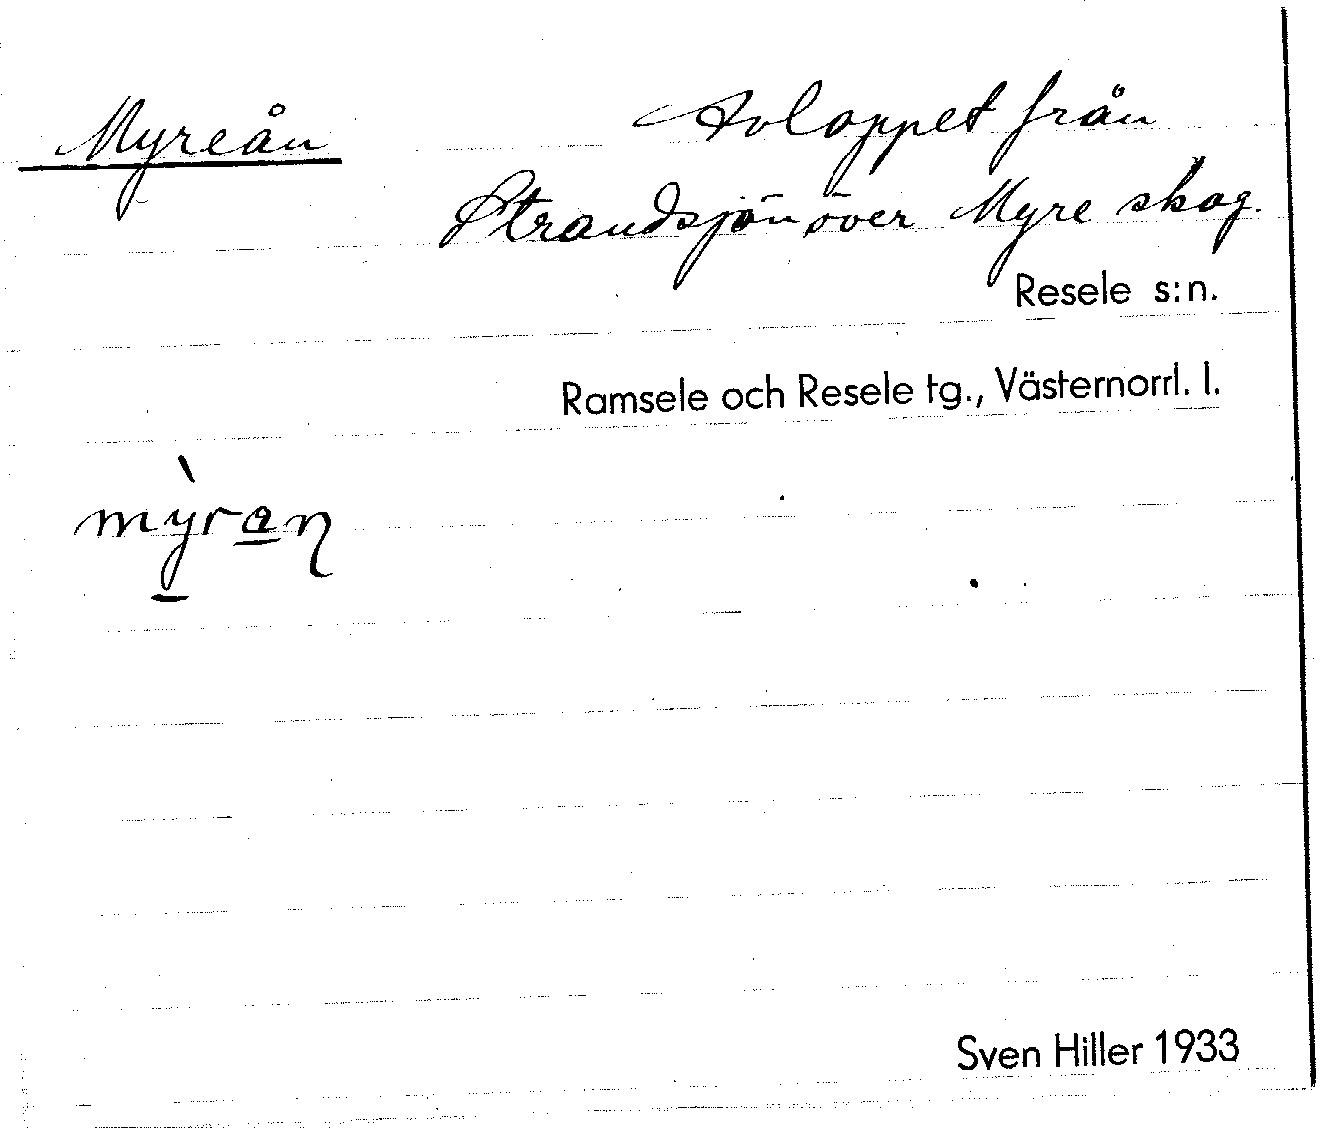 Myreån
Avloppet från
Strandsjön över Myre skog.
Resele s:n.
Ramsele och Resele tg., Västernorrl. l.
mỳra̲ŋ
Sven Hiller 1933